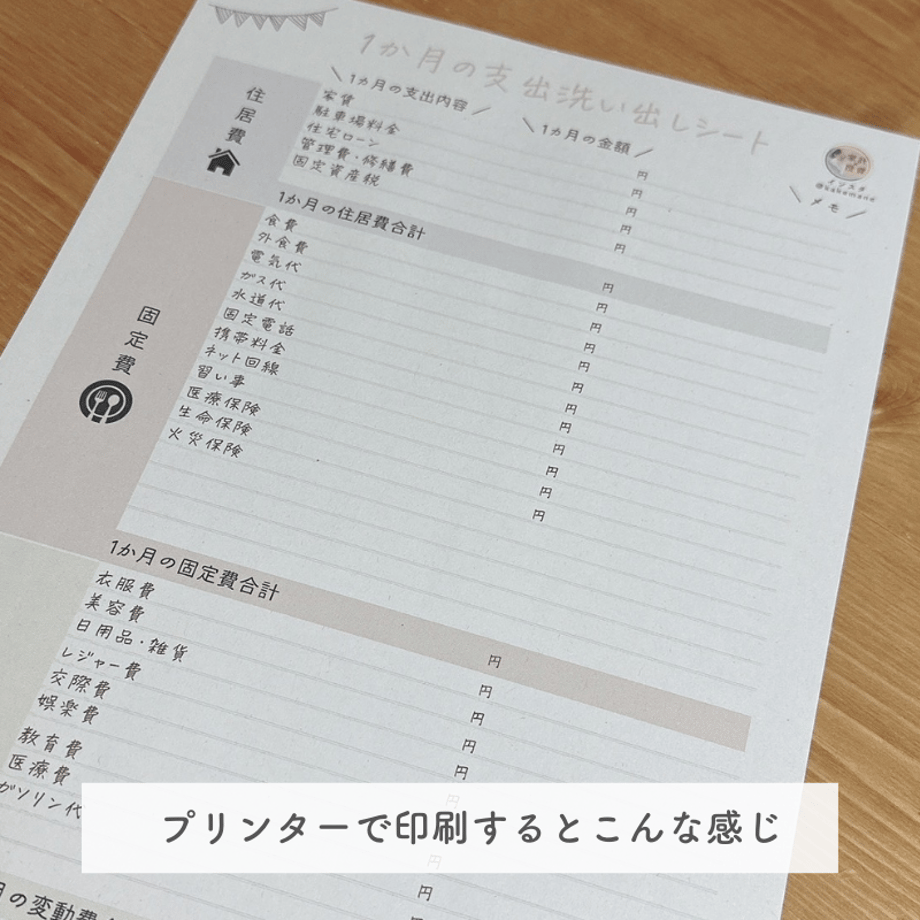 1か月の支出洗い出しシート
\ 1カ月の支出内容 /
\ 1カ月の金額 /
インスタ
\ メモ /
住居費
家賃 円
駐車場料金 円
住宅ローン 円
管理費・修繕費 円
固定資産税 円
1か月の住居費合計 円
固定費
食費 円
外食費 円
電気代 円
ガス代 円
水道代 円
固定電話 円
携帯料金 円
ネット回線 円
習い事 円
医療保険 円
生命保険 円
火災保険 円
1か月の固定費合計 円
衣服費 円
美容費 円
日用品・雑貨 円
レジャー費 円
交際費 円
娯楽費 円
教育費 円
医療費 円
ガソリン代
月の変動費
プリンターで印刷するとこんな感じ